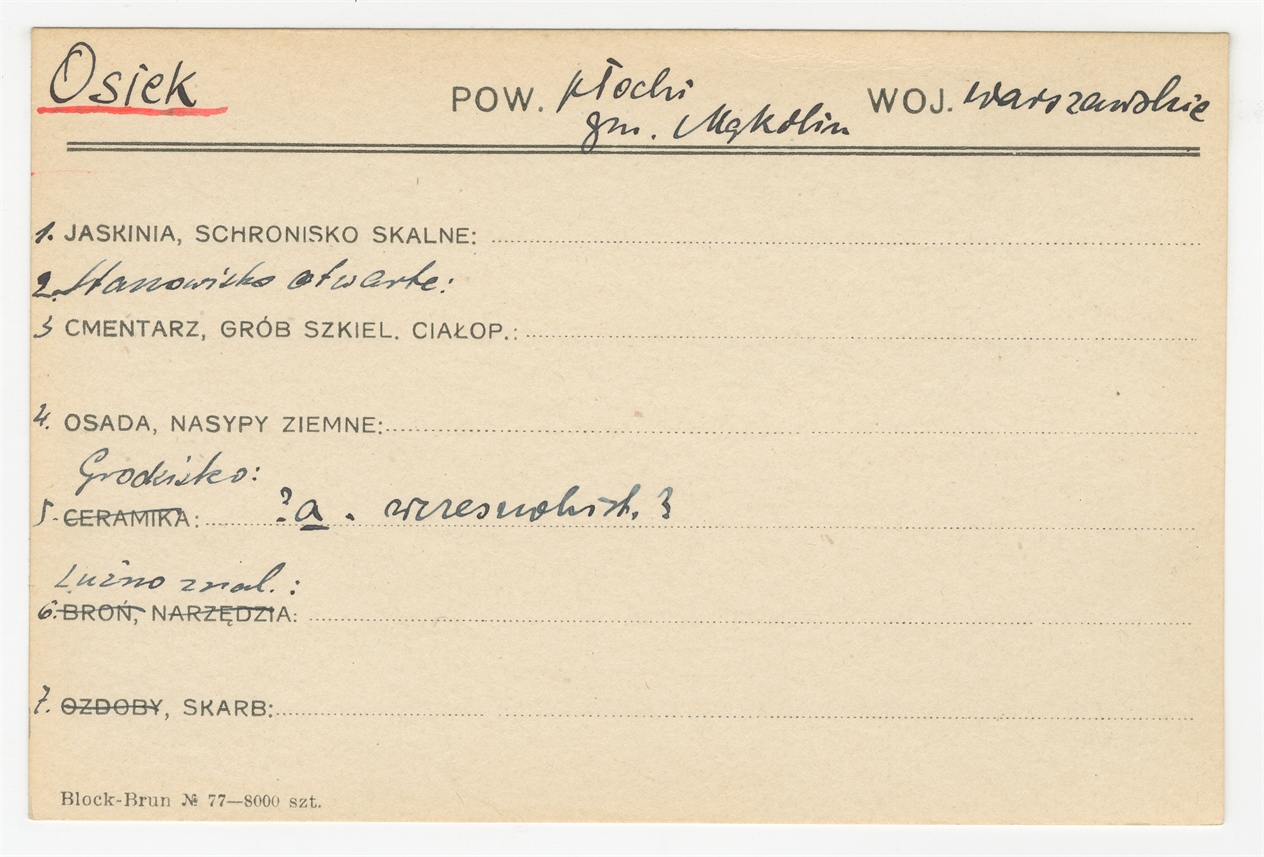 Osiek POW. płocki WOJ. warszawskie
gm. Mąkolin
1. JASKINIA, SCHRONISKO SKALNE:
2. Stanowisko otwarte:
3 CMENTARZ, GRÓB SZKIEL. CIAŁOP.:
4. OSADA, NASYPY ZIEMNE:
Grodzisko:
5. CERAMIKA: ? a. wczesnohist. ?
Luźno znal.:
6. BROŃ, NARZĘDZIA:
7. OZDOBY, SKARB:
Block-Brun № 77—8000 szt.